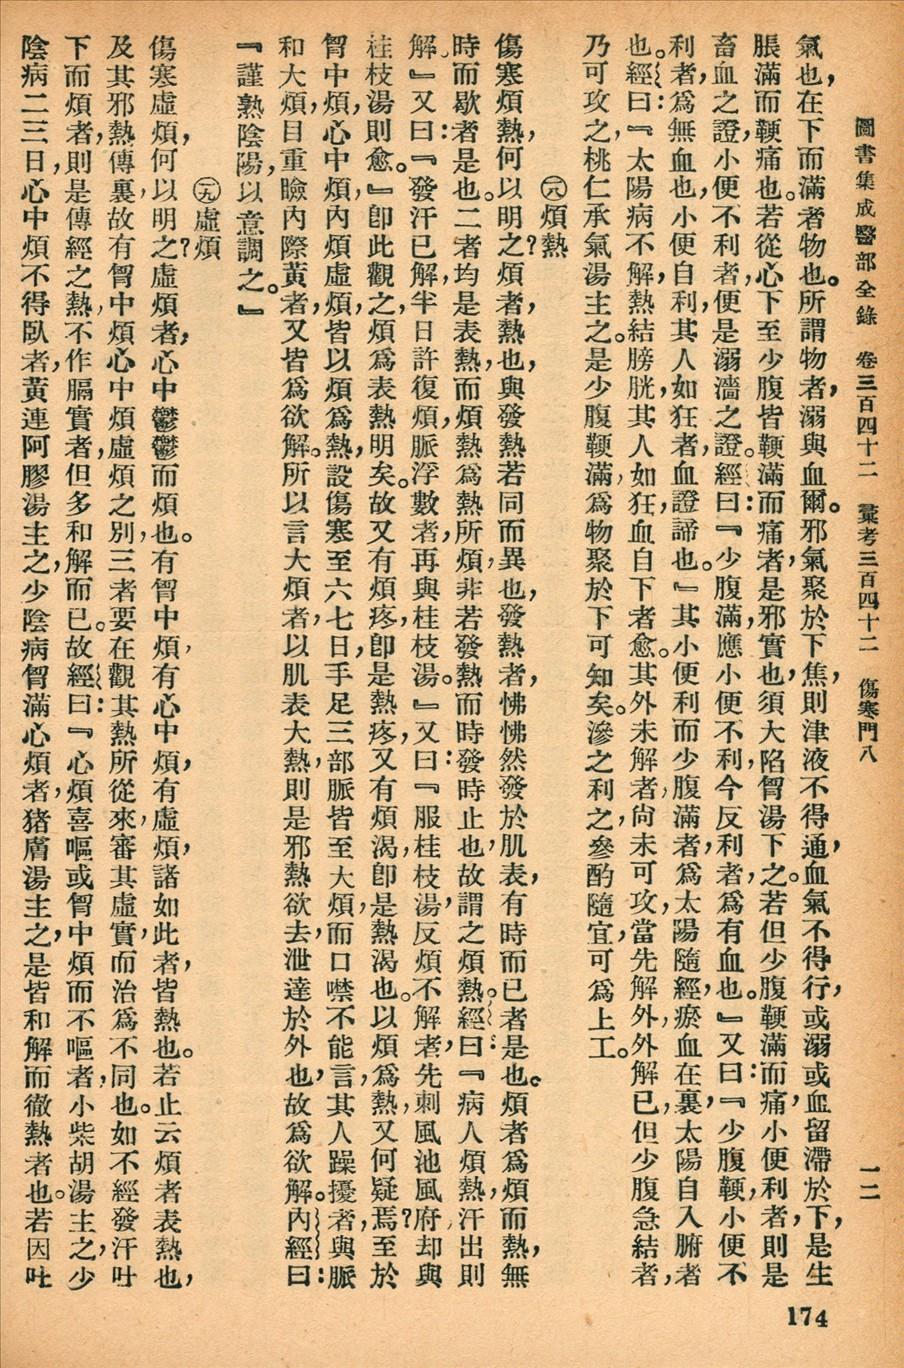 圖書集成醫部全錄　卷三百四十二　彙考三百四十二　傷寒門八
一二
氣也，在下而滿者物也。所謂物者，溺與血爾。邪氣聚於下焦，則津液不得通，血氣不得行，或溺或血留滯於下，是生
脹滿而鞕痛也。若從心下至少腹皆鞕滿而痛者，是邪實也，須大陷胷湯下之。若但少腹鞕滿而痛，小便利者，則是
畜血之證，小便不利者，便是溺濇之證。經曰：『少腹滿，應小便不利，今反利者，爲有血也。』又曰：『少腹鞕，小便不
利者，爲無血也，小便自利，其人如狂者，血證諦也。』其小便利而少腹滿者，爲太陽隨經，瘀血在裏，太陽自入腑者
也。經曰：『太陽病不解，熱結膀胱，其人如狂，血自下者愈。其外未解者，尙未可攻，當先解外，外解已，但少腹急結者，
乃可攻之，桃仁承氣湯主之。是少腹鞕滿，爲物聚於下可知矣。滲之利之，參酌隨宜，可爲上工。
㊁八煩熱
傷寒煩熱，何以明之？煩者，熱也，與發熱若同而異也，發熱者，怫怫然發於肌表，有時而已者是也。煩者爲煩而熱，無
時而歇者是也。二者均是表熱，而煩熱爲熱所煩，非若發熱而時發時止也，故謂之煩熱。經曰：『病人煩熱，汗出則
解。』又曰：『發汗已解，半日許復煩，脈浮數者，再與桂枝湯。』又曰：『服桂枝湯，反煩不解者，先刺風池風府，却與
桂枝湯則愈。』卽此觀之，煩爲表熱明矣。故又有煩疼，卽是熱疼，又有煩渴，卽是熱渴也。以煩爲熱，又何疑焉？至於
胷中煩，心中煩，內煩虛煩，皆以煩爲熱，設傷寒至六七日，手足三部脈皆至大煩，而口噤不能言，其人躁擾者，與脈
和大煩，目重瞼內際黃者，又皆爲欲解。所以言大煩者，以肌表大熱，則是邪熱欲去，泄達於外也，故爲欲解。內經曰：
『謹熟陰陽，以意調之。』
㊁九虛煩
傷寒虛煩，何以明之？虛煩者，心中鬱鬱而煩也。有胷中煩，有心中煩，有虛煩，諸如此者，皆熱也。若止云煩者表熱也，
及其邪熱傳裏，故有胷中煩心中煩虛煩之別，三者要在觀其熱所從來，審其虛實，而治爲不同也。如不經發汗吐
下而煩者，則是傳經之熱，不作膈實者，但多和解而已。故經曰：『心煩喜嘔或胷中煩而不嘔者，小柴胡湯主之，少
陰病二三日，心中煩不得臥者，黃連阿膠湯主之，少陰病胷滿心煩者，猪膚湯主之，是皆和解而徹熱者也。若因吐
174